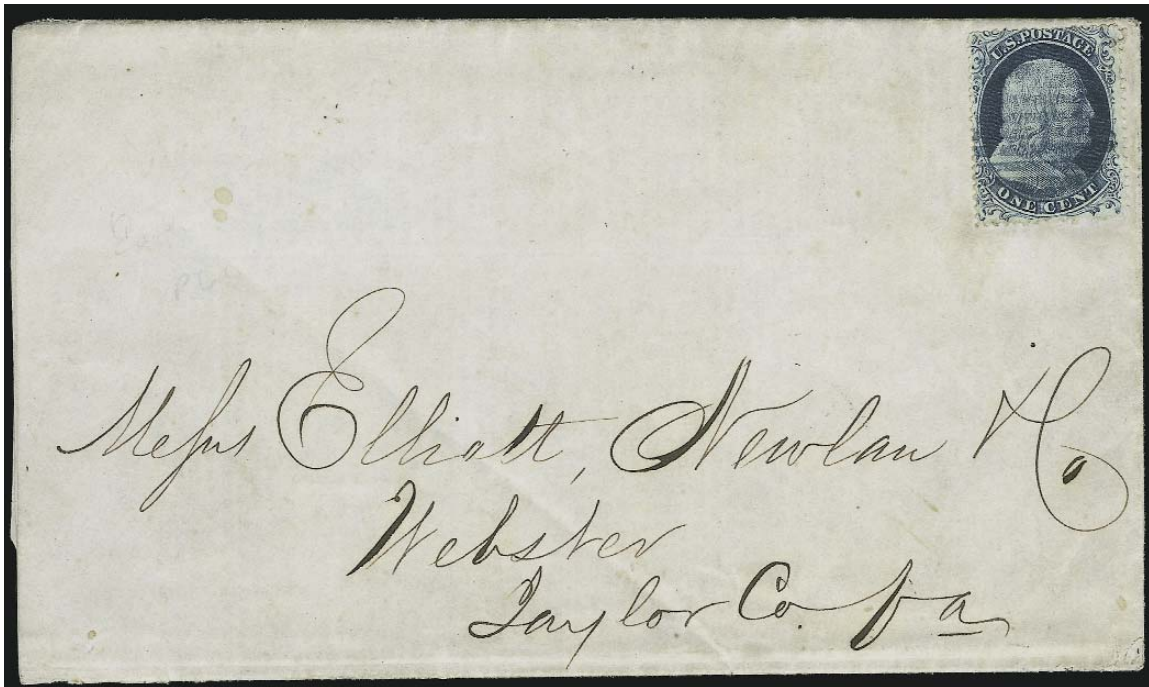 U.S. POSTAGE
ONE CENT
Messrs Elliott, Newlan & Co
Webster
Taylor Co. Va